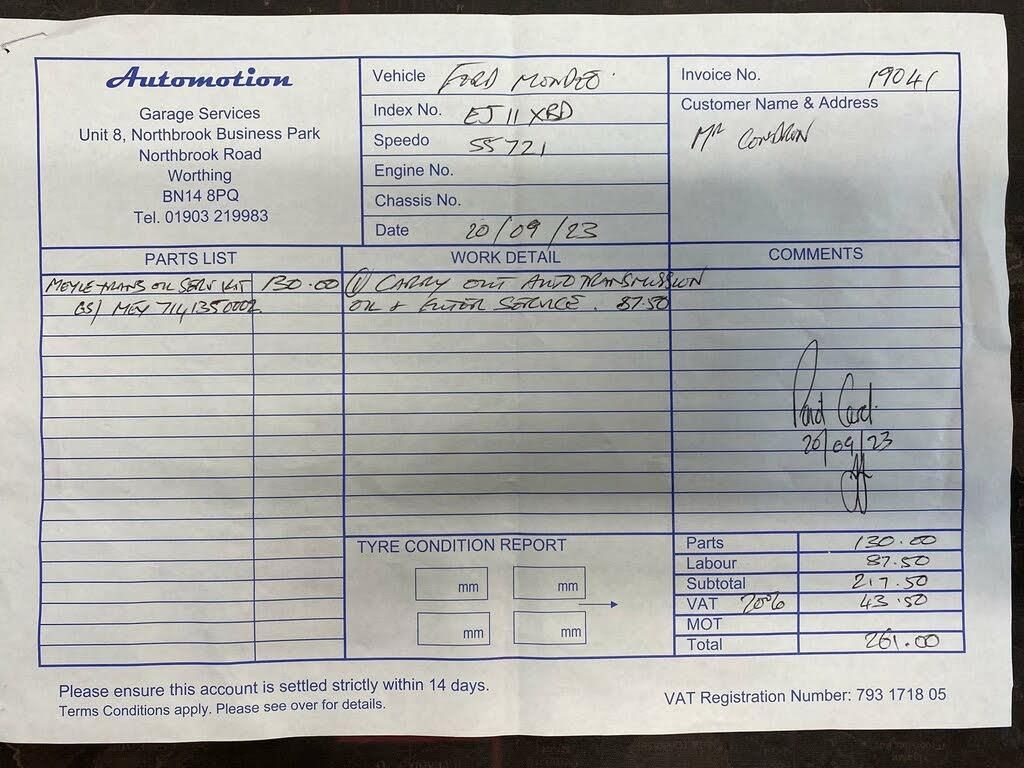 Automotion
Garage Services
Unit 8, Northbrook Business Park
Northbrook Road
Worthing
BN14 8PQ
Tel. 01903 219983
Vehicle FORD MONDEO
Index No. EJ11 XBD
Speedo 55721
Engine No.
Chassis No.
Date 20/09/23
Invoice No. 19041
Customer Name & Address
Mr CONDRON
PARTS LIST
WORK DETAIL
COMMENTS
MEYLE TRANS OIL SERV KIT 130.00
GS/ MEY 7141350002
(1) CARRY OUT AUTO TRANSMISSION
OIL & FILTER SERVICE. 87.50
Paid Card.
20/09/23
TYRE CONDITION REPORT
mm mm
mm mm
Parts 130.00
Labour 87.50
Subtotal 217.50
VAT 20% 43.50
MOT
Total 261.00
Please ensure this account is settled strictly within 14 days.
Terms Conditions apply. Please see over for details.
VAT Registration Number: 793 1718 05